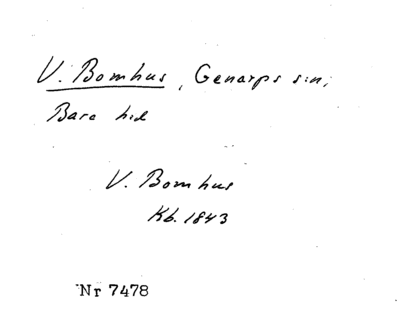 V. Bomhus, Genarps sn,
Bara hd
V. Bomhus
Kb. 1843
Nr 7478